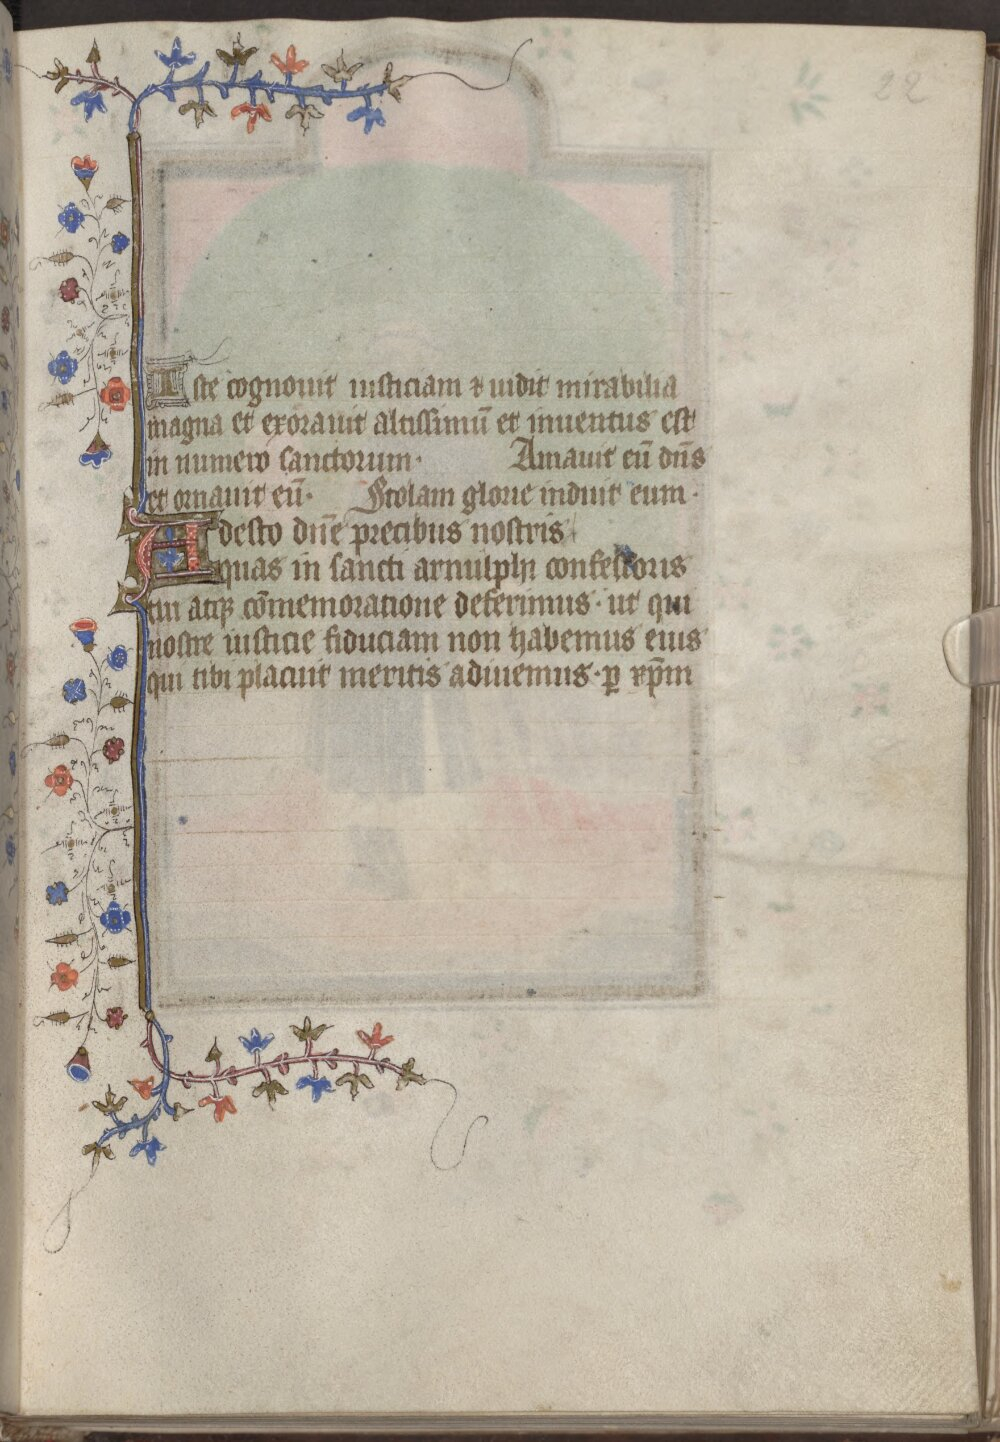 22
Iste cognouit iusticiam ⁊ uidit mirabilia
magna et exorauit altissimū et inuentus est
in numero sanctorum· Amauit eū dn̄s
et ornauit eū· Stolam glorie induit eum·
Adesto dn̄e precibus nostris
quas in sancti arnulphi confessoris
tui atqꝫ cōmemoratione deferimus· ut qui
nostre iusticie fiduciam non habemus eius
qui tibi placuit meritis adiuuemus· ꝑ xp̄m